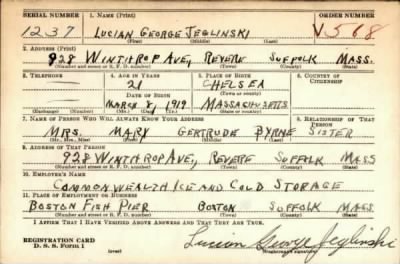 SERIAL NUMBER 1. NAME (Print) ORDER NUMBER
1237 LUCIAN GEORGE JEGLINSKI V568
(First) (Middle) (Last)
2. ADDRESS (Print)
928 WINTHROP AVE, REVERE SUFFOLK MASS.
(Number and street or R. F. D. number) (Town) (County) (State)
3. TELEPHONE 4. AGE IN YEARS 5. PLACE OF BIRTH 6. COUNTRY OF CITIZENSHIP
— 21 CHELSEA
DATE OF BIRTH (Town or county)
MARCH 8, 1919 MASSACHUSETTS.
(Exchange) (Number) (Mo.) (Day) (Yr.) (State or country)
7. NAME OF PERSON WHO WILL ALWAYS KNOW YOUR ADDRESS 8. RELATIONSHIP OF THAT PERSON
MRS. MARY GERTRUDE BYRNE SISTER
(Mr., Mrs., Miss) (First) (Middle) (Last)
9. ADDRESS OF THAT PERSON
928 WINTHROP AVE, REVERE SUFFOLK MASS
(Number and street or R. F. D. number) (Town) (County) (State)
10. EMPLOYER'S NAME
COMMONWEALTH ICE AND COLD STORAGE
11. PLACE OF EMPLOYMENT OR BUSINESS
BOSTON FISH PIER BOSTON SUFFOLK MASS
(Number and street or R. F. D. number) (Town) (County) (State)
I AFFIRM THAT I HAVE VERIFIED ABOVE ANSWERS AND THAT THEY ARE TRUE.
REGISTRATION CARD
D. S. S. Form 1
Lucian George Jeglinski
(Registrant's signature)